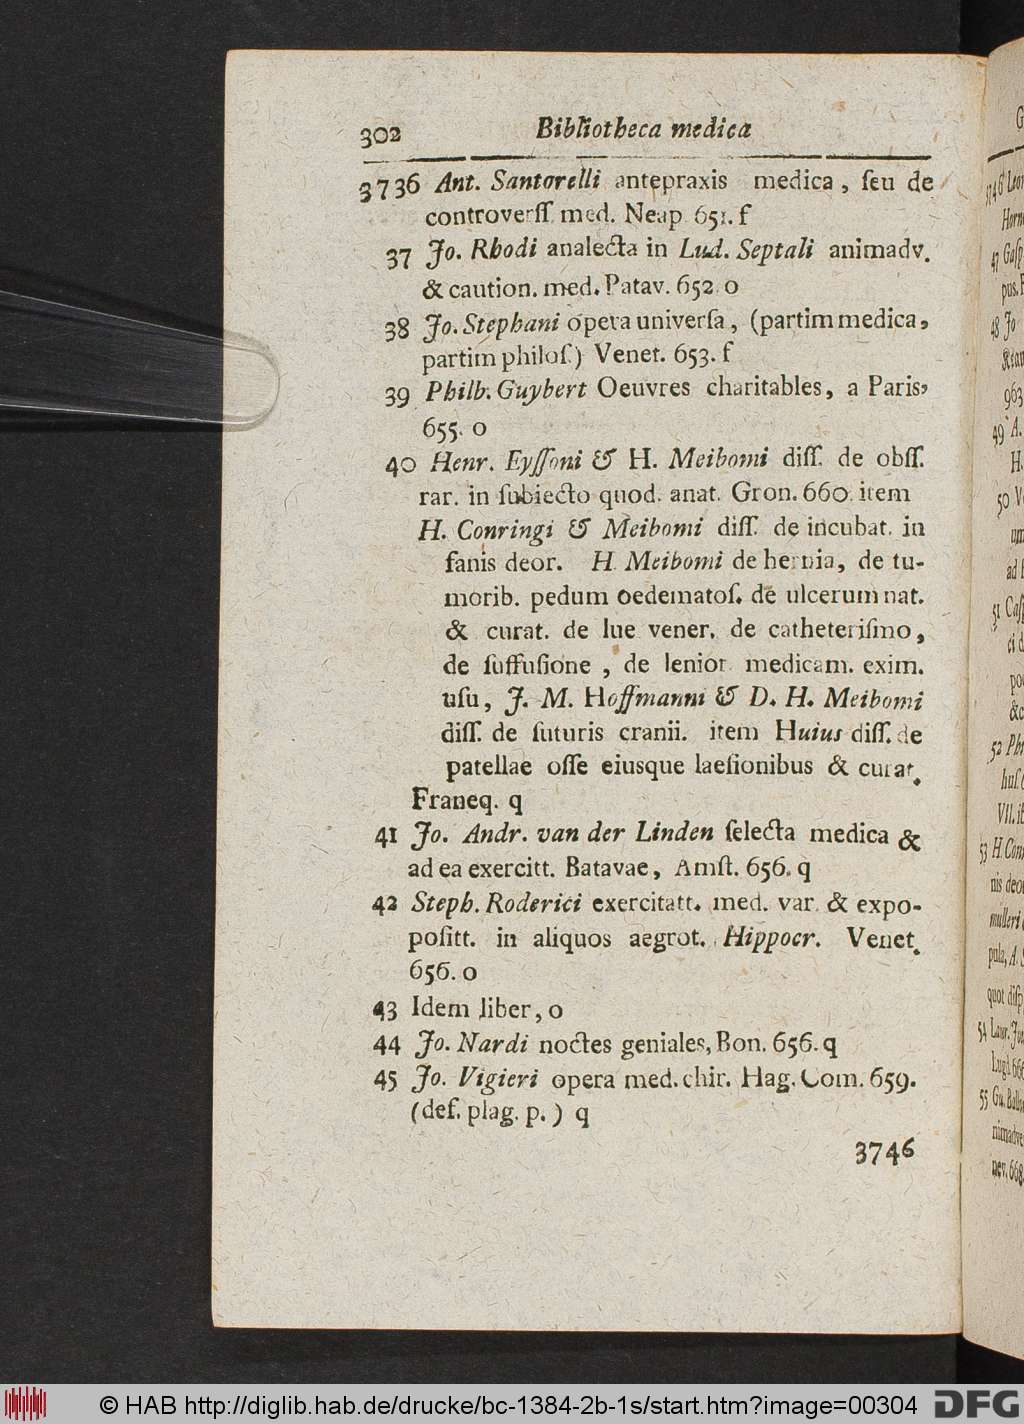 302 Bibliotheca medica
3736 Ant. Santorelli antepraxis medica, ſeu de
controverſſ. med. Neap. 651. f
37 Jo. Rhodi analecta in Lud. Septali animadv.
& caution. med. Patav. 652. o
38 Jo. Stephani opera univerſa, (partim medica,
partim philoſ.) Venet. 653. f
39 Philb. Guybert Oeuvres charitables, a Paris,
655. o
40 Henr. Eyſſoni & H. Meibomi diſſ. de obſſ.
rar. in ſubiecto quod. anat. Gron. 660. item
H. Conringi & Meibomi diſſ. de incubat. in
fanis deor. H. Meibomi de hernia, de tu-
morib. pedum oedematoſ. de ulcerum nat.
& curat. de lue vener. de catheteriſmo,
de ſuffuſione, de lenior. medicam. exim.
uſu, J. M. Hoffmanni & D. H. Meibomi
diſſ. de ſuturis cranii. item Huius diſſ. de
patellae oſſe eiusque laeſionibus & curat.
Franeq. q
41 Jo. Andr. van der Linden ſelecta medica &
ad ea exercitt. Batavae, Amſt. 656. q
42 Steph. Roderici exercitatt. med. var. & expo-
poſitt. in aliquos aegrot. Hippocr. Venet.
656. o
43 Idem liber, o
44 Jo. Nardi noctes geniales, Bon. 656. q
45 Jo. Vigieri opera med. chir. Hag. Com. 659.
(def. plag. p.) q
3746
© HAB http://diglib.hab.de/drucke/bc-1384-2b-1s/start.htm?image=00304
DFG